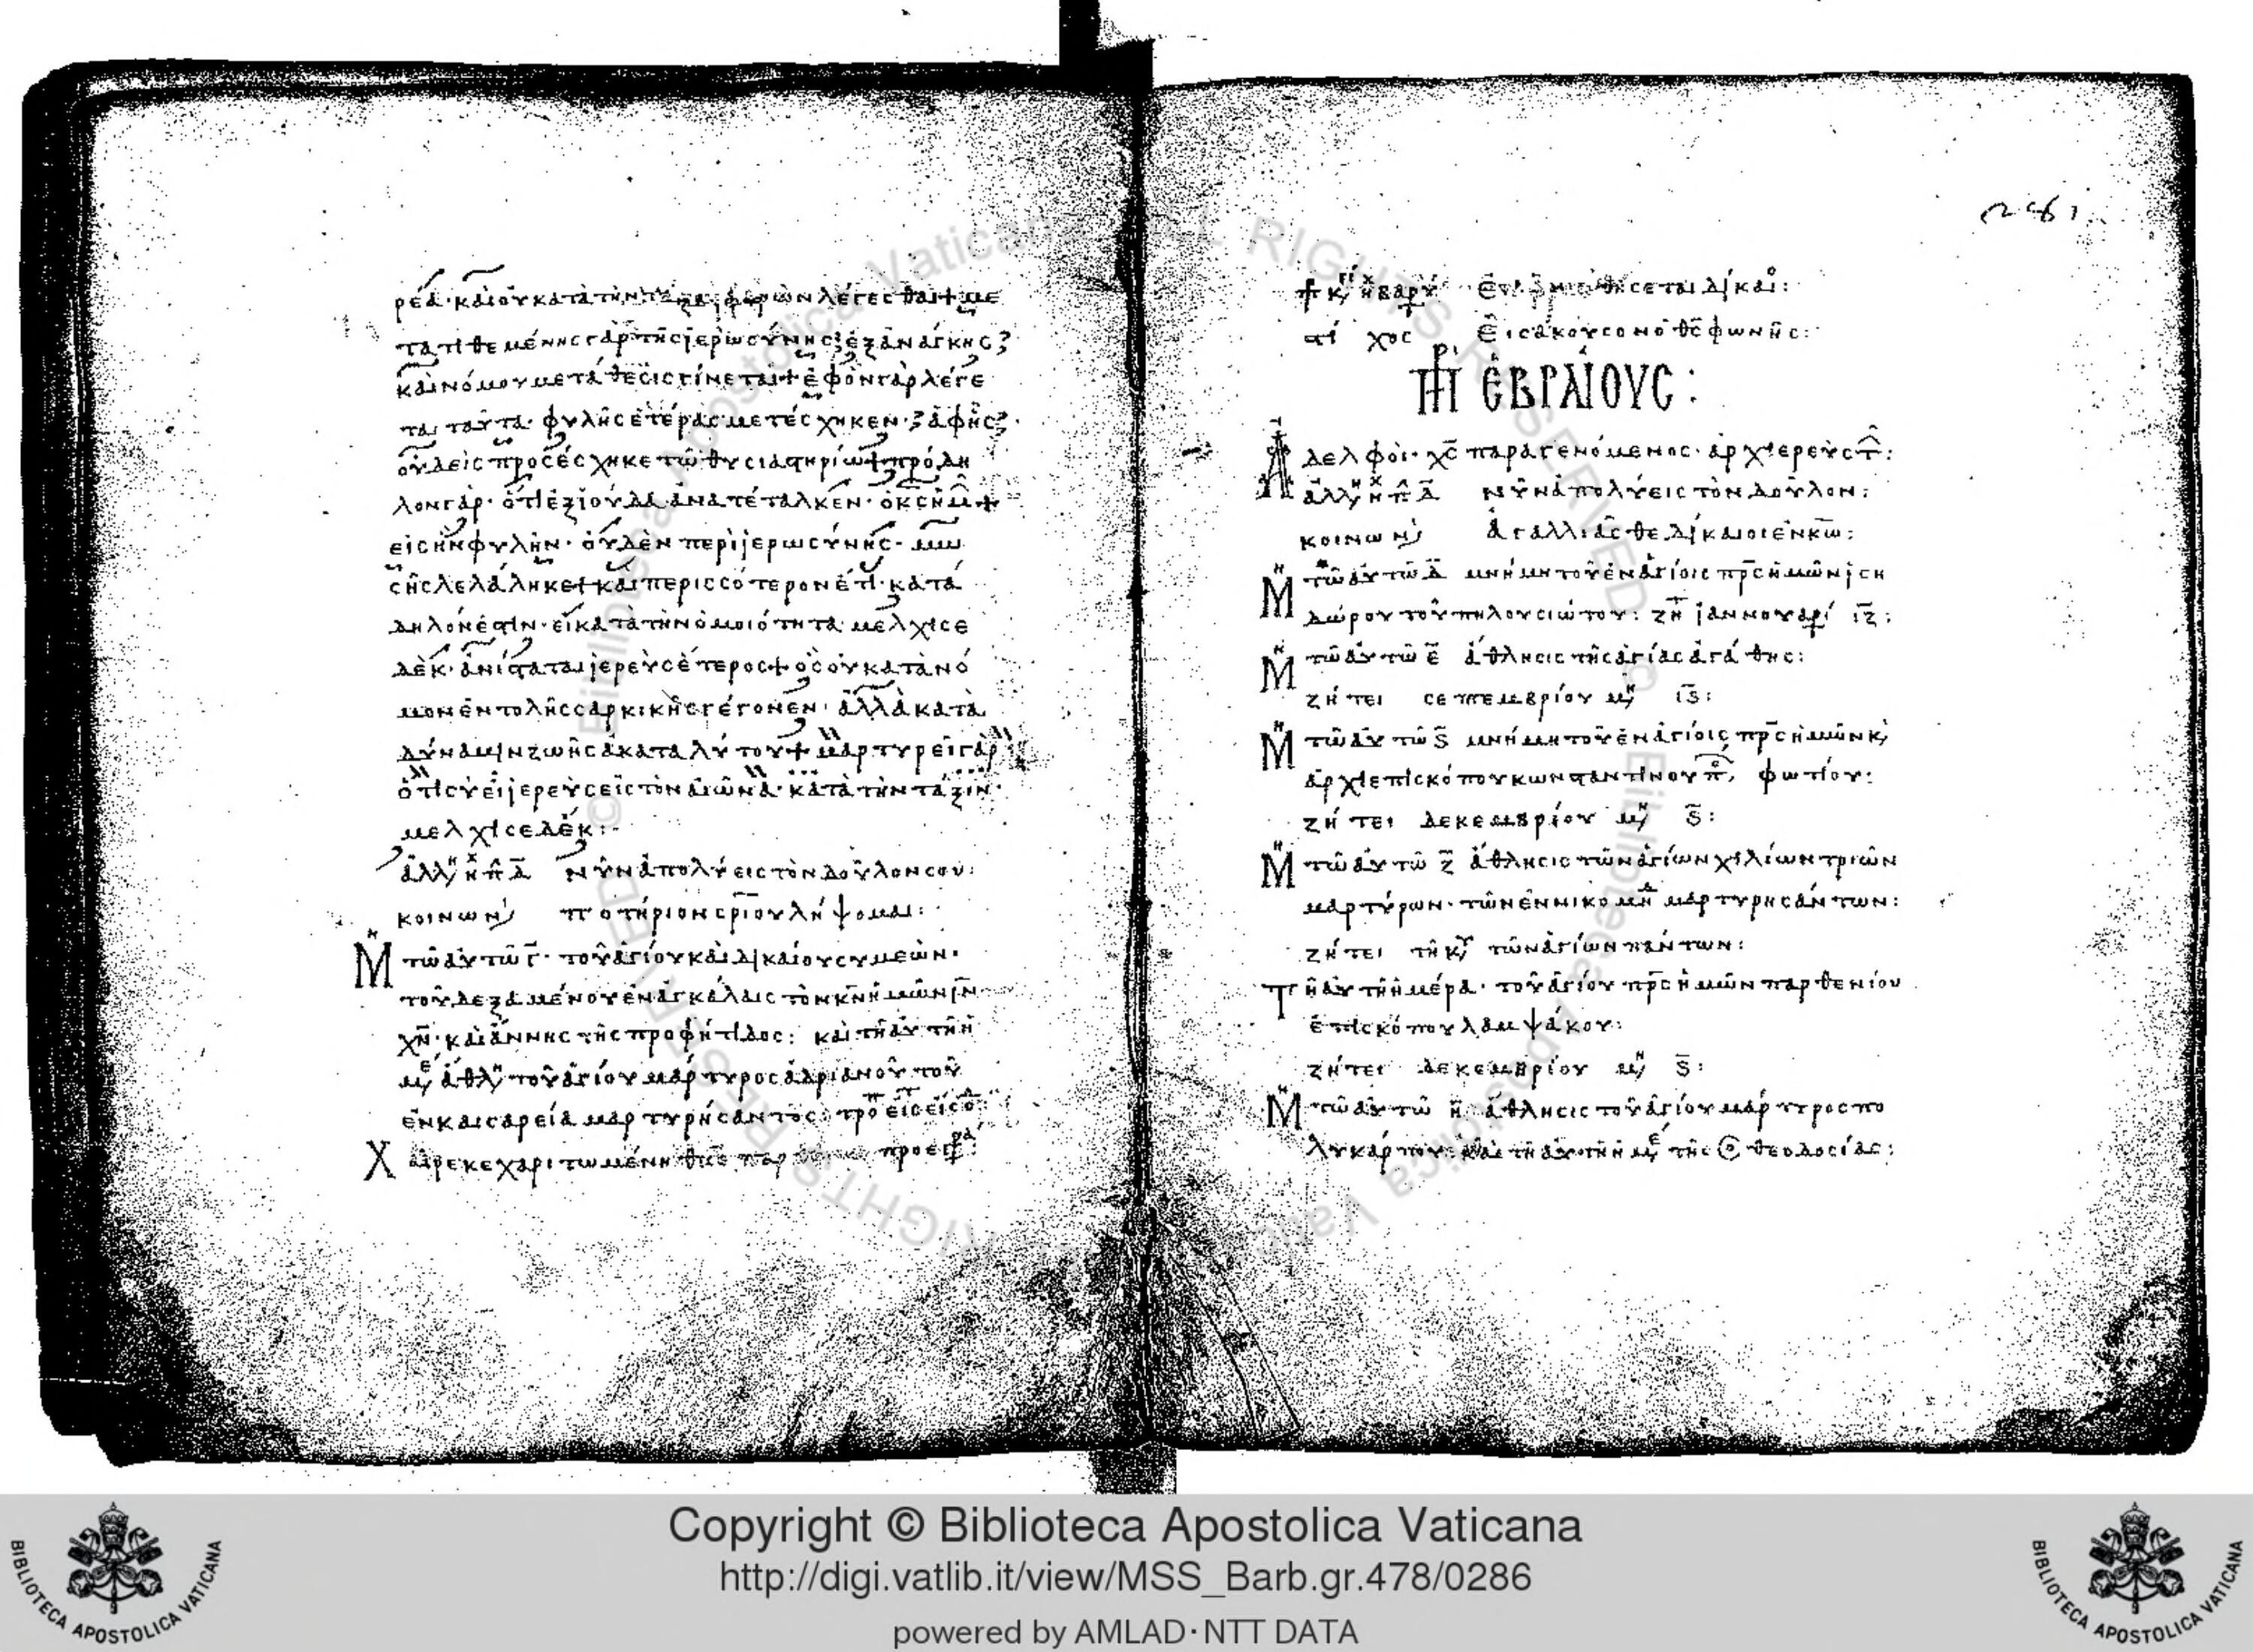 ρέα· καὶ οὐ κατὰ τὴν τάξιν ἀαρὼν λέγεσθαι + με
τατιθεμένης γὰρ τῆς ἱερωσύνης· ἐξ ἀνάγκης
καὶ νόμου μετάθεσις γίνεται + ἐφ ὃν γὰρ λέγε
ται ταῦτα· φυλῆς ἑτέρας μετέσχηκεν· ἀφ ἧς
οὐδεὶς προσέσχηκε τῶ θυσιαστηρίω + πρόδη
λον γάρ· ὅτι ἐξ ἰούδα ἀνατέταλκεν· ὁ κς ἡμ +
εἰς ἣν φυλὴν· οὐδὲν περὶ ἱερωσύνης· μω
σῆς λελάληκε + καὶ περισσότερον ἔτι κατά
δηλόν ἐστιν· εἰ κατὰ τὴν ὁμοιότητα μελχισε
δὲκ· ἀνίσταται ἱερεὺς ἕτερος + ὃς οὐ κατὰ νό
μον ἐντολῆς σαρκικῆς γέγονεν· ἀλλὰ κατὰ
δύναμιν ζωῆς ἀκαταλύτου + μαρτυρεῖ γὰρ
ὅτι σὺ εἶ ἱερεὺς εἰς τὸν αἰῶνα· κατὰ τὴν τάξιν·
μελχισεδέκ:
ἀλλη ηχ πλ α νῦν ἀπολύεις τὸν δοῦλον σου:
κοινων ποτήριον σριου λήψομαι:
Μη τῶ αὐτῶ γ· τοῦ ἁγίου καὶ δικαίου συμεὼν·
τοῦ δεξαμένου ἐν ἀγκάλαις τὸν κν ἡμῶν ιν
χν· καὶ ἄννης τῆς προφήτιδος: καὶ τῆ αὐτῆ ἡ
με ἀθλη τοῦ ἁγίου μάρτυρος ἀδριανοῦ τοῦ
ἐν καισαρεία μαρτυρήσαντος:
Χαῖρε κεχαριτωμένη θκε παρθένε προεγρα:
στι ηχ βαρυ Εὐφρανθήσεται δίκαι:
στί χος Εἰσάκουσον ὁ θς φωνῆς:
πρ ἑβραίους:
Ἀδελφοὶ· χς παραγενόμενος· ἀρχιερεὺς τ:
ἀλλη ηχ πλ α νῦν ἀπολύεις τὸν δοῦλον:
κοινων ἀγαλλιᾶσθε δίκαιοι ἐν κω:
Μη τῶ αὐτῶ δ μνήμη τοῦ ἐν ἁγίοις πρς ἡμῶν ἰση
δώρου τοῦ πηλουσιώτου: ζητ ἰαννουαρί ιζ:
Μη τῶ αὐτῶ ε ἄθλησις τῆς ἁγίας ἀγάθης:
ζήτει σεπτεμβρίου μη ις:
Μη τῶ αὐτῶ ς μνήμη τοῦ ἐν ἁγίοις πρς ἡμῶν κ
ἀρχιεπισκόπου κωνσταντινουπο, φωτίου:
ζήτει δεκεμβρίου μη ς:
Μη τῶ αὐτῶ ζ ἄθλησις τῶν ἁγίων χιλίων τριῶν
μαρτύρων· τῶν ἐν νικομηδ μαρτυρησάντων:
ζήτει τῆ κυ τῶν ἁγίων πάντων:
Τῆ αὐτῆ ἡμέρα· τοῦ ἁγίου πρς ἡμῶν παρθενίου
ἐπισκόπου λαμψάκου:
ζήτει δεκεμβρίου μη ς:
Μη τῶ αὐτῶ η ἄθλησις τοῦ ἁγίου μάρτυρος πο
λυκάρπου: καὶ τῆ αὐτῆ ἡμε τῆς θεοδοσίας:
Copyright © Biblioteca Apostolica Vaticana
http://digi.vatlib.it/view/MSS_Barb.gr.478/0286
powered by AMLAD·NTT DATA
BIBLIOTECA APOSTOLICA VATICANA
BIBLIOTECA APOSTOLICA VATICANA